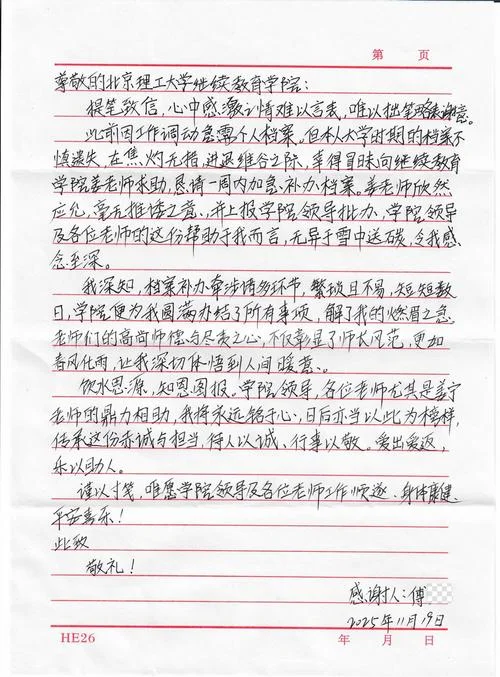 第 页
尊敬的北京理工大学继续教育学院：
提笔致信，心中感激之情难以言表，唯以拙笔略表谢意。
此前因工作调动急需个人档案。但本人大学时期的档案不
慎遗失，在焦灼无措、进退维谷之际，幸得冒昧向继续教育
学院姜老师求助，恳请一周内加急补办档案。姜老师欣然
应允，毫无推诿之意，并上报学院领导批办，学院领导
及各位老师的这份帮助于我而言，无异于雪中送碳，令我感
念至深。
我深知，档案补办牵涉诸多环节，繁琐且不易，短短数
日，学院便为我圆满办结了所有事项，解了我的燃眉之急。
老师们的高尚师德与尽责之心，不仅彰显了师长风范，更如
春风化雨，让我深切体悟到人间暖意。
饮水思源，知恩图报。学院领导，各位老师尤其是姜宁
老师的鼎力相助，我将永远铭于心，日后亦当以此为榜样，
传承这份赤诚与担当，待人以诚，行事以敬。爱出爱返，
乐以助人。
谨以寸笺，唯愿学院领导及各位老师工作顺遂、身体康健、
平安喜乐！
此致
敬礼！
感谢人：傅
2025年11月19日
HE26 年 月 日